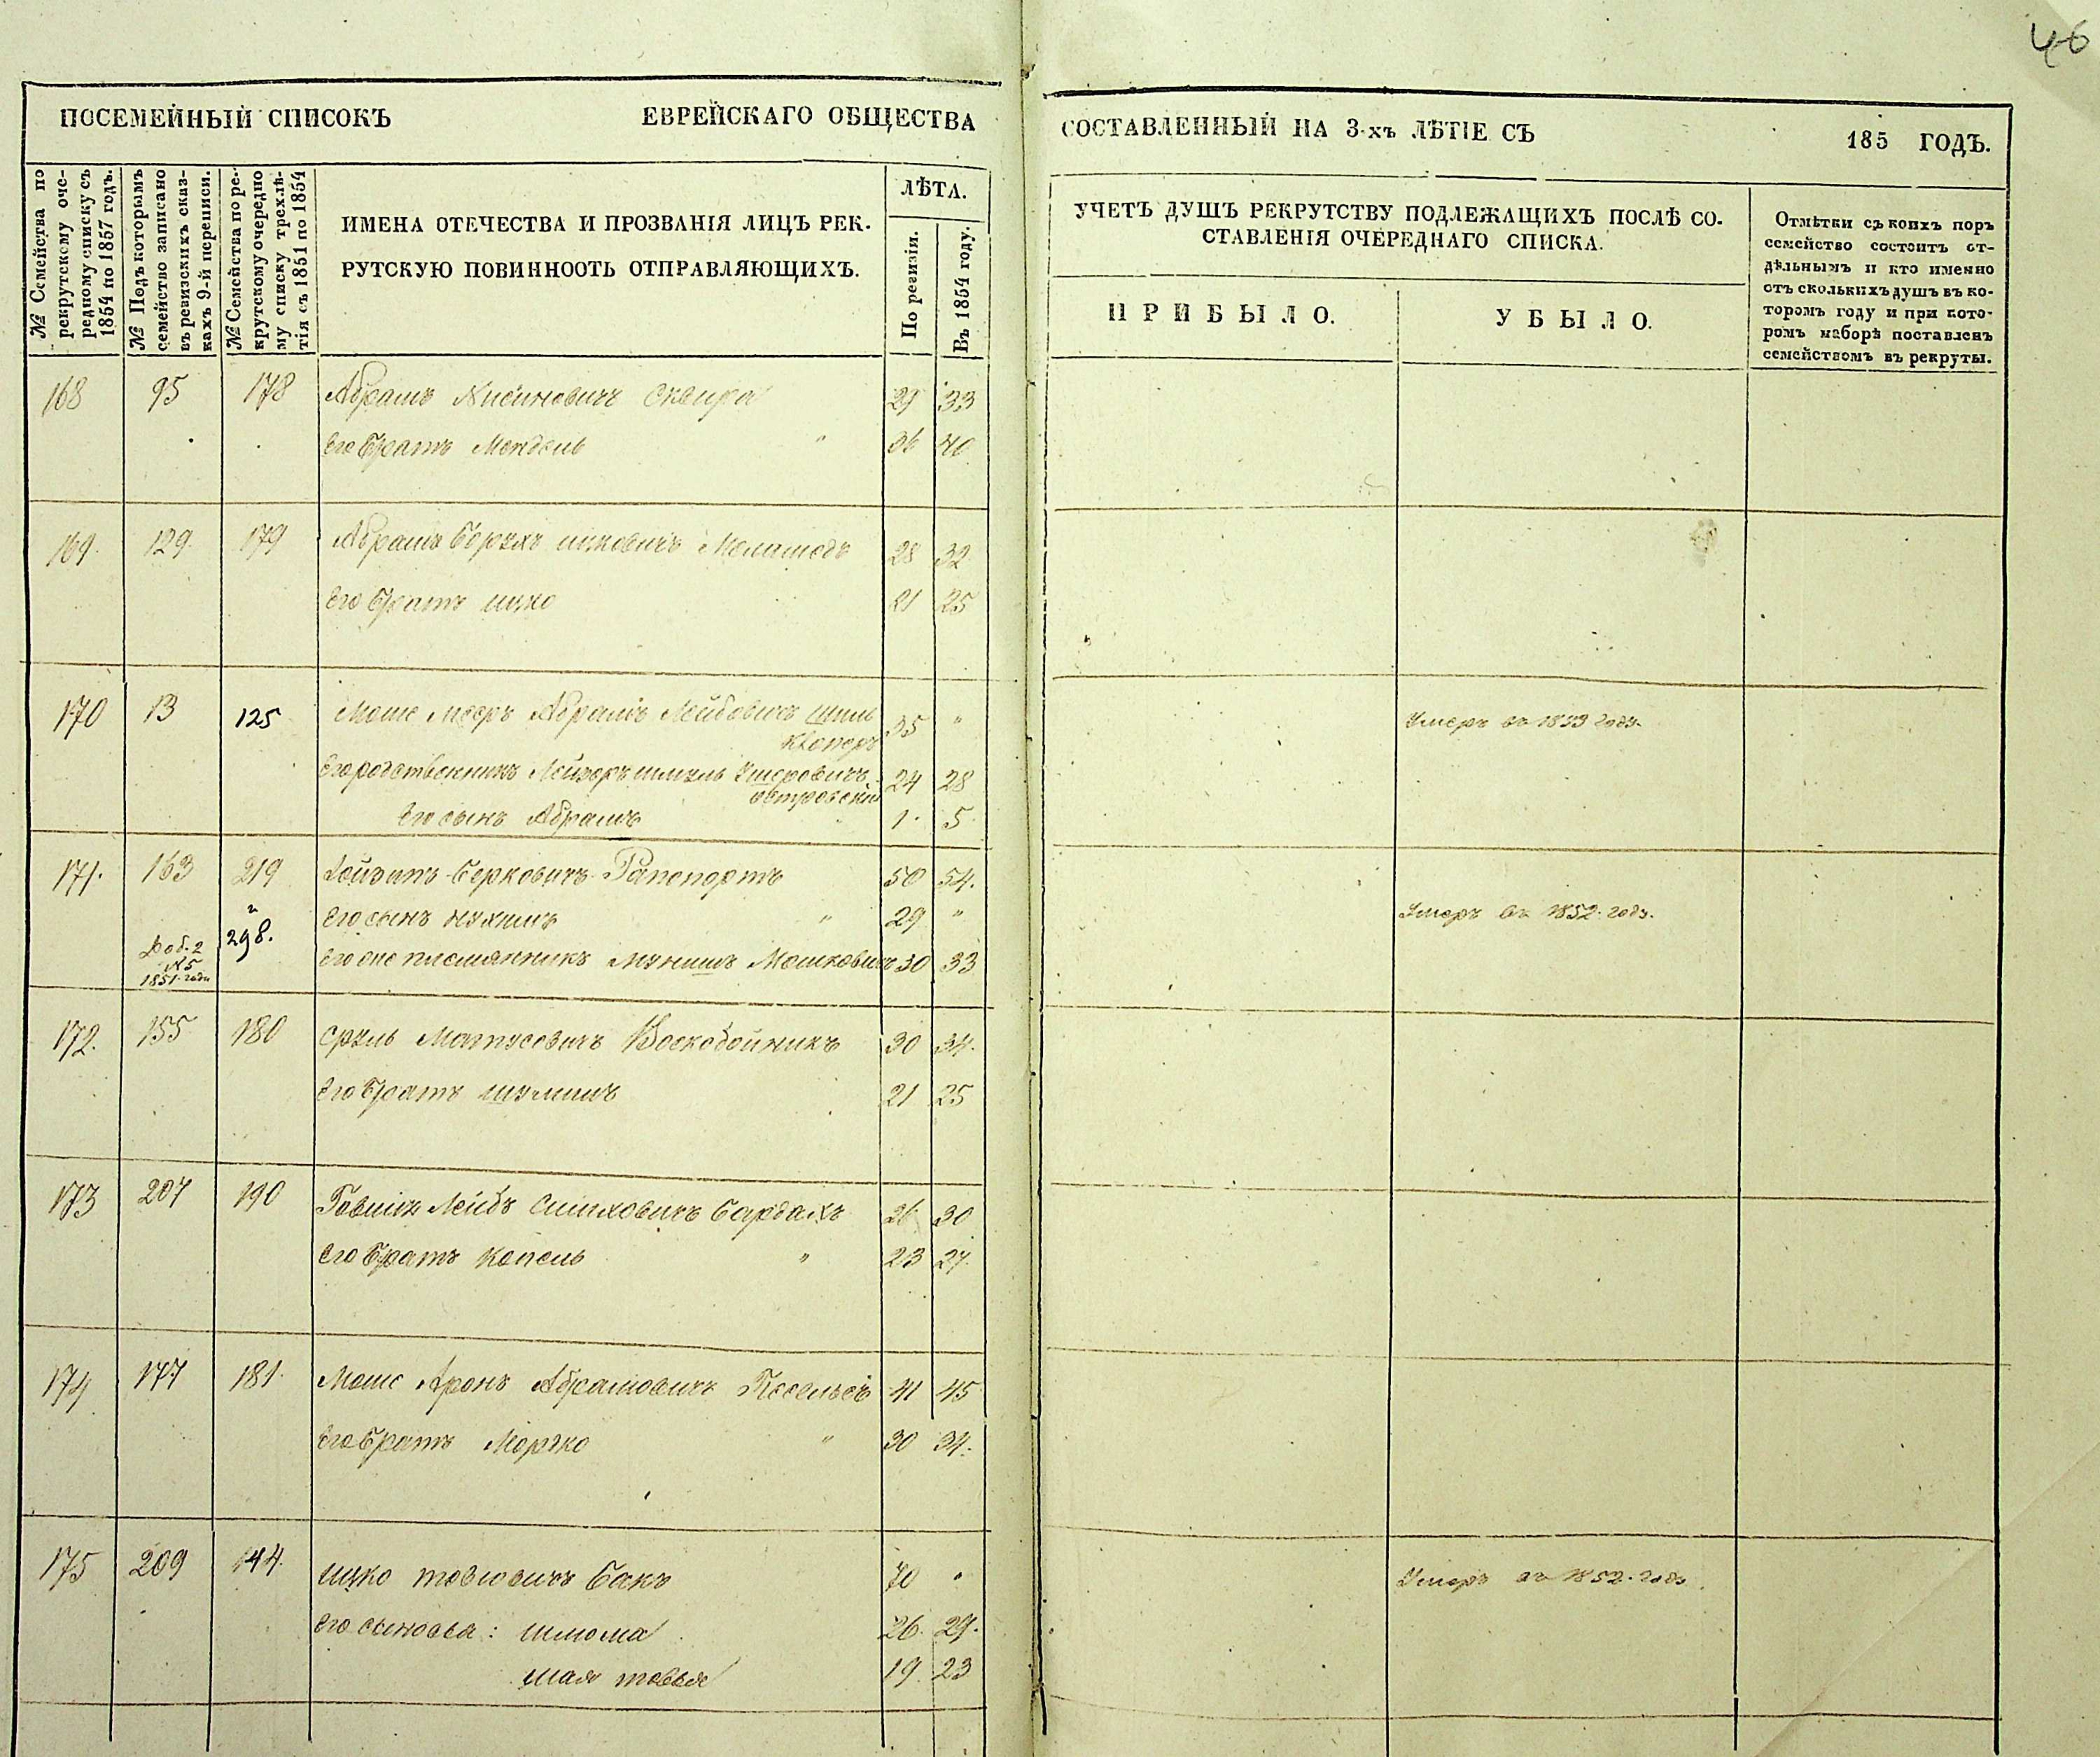 46
ПОСЕМЕЙНЫЙ СПИСОКЪ ЕВРЕЙСКАГО ОБЩЕСТВА СОСТАВЛЕННЫЙ НА 3-хъ ЛѢТІЕ СЪ 185 ГОДЪ.
№ Семейства по
рекрутскому оче-
редному списку съ
1854 по 1857 годъ.
№ Подъ которымъ
семейство записано
въ ревизскихъ сказ-
кахъ 9-й переписи.
№ Семейства по ре-
крутскому очередно
му списку трехлѣ-
тія съ 1851 по 1854
ИМЕНА ОТЕЧЕСТВА И ПРОЗВАНІЯ ЛИЦЪ РЕК-
РУТСКУЮ ПОВИННООТЬ ОТПРАВЛЯЮЩИХЪ.
ЛѢТА.
По ревизіи.
Въ 1854 году.
УЧЕТЪ ДУШЪ РЕКРУТСТВУ ПОДЛЕЖАЩИХЪ ПОСЛѢ СО-
СТАВЛЕНІЯ ОЧЕРЕДНАГО СПИСКА.
ПРИБЫЛО.
УБЫЛО.
Отмѣтки съ коихъ поръ
семейство состоитъ от-
дѣльнымъ и кто именно
отъ сколькихъ душъ въ ко-
торомъ году и при кото-
ромъ наборѣ поставленъ
семействомъ въ рекруты.
168 95 178 Абрамъ Нисиновичъ Сквира 29 33
Его братъ Мендель " 36 40
169. 129. 179 Абрамъ Берхъ Ицковичъ Меламедъ 28 32
Его братъ Ицко 21 25
170 13 125 Моше Мееръ Абрамъ Лейбовичъ 35 " Умеръ въ 1853 году.
Его родственникъ Лейзеръ Шмуль Ушеровичъ 24 28
Островскій
Его сынъ Абрамъ 1. 5.
171. 163 219 Берковичъ Рапопортъ 50 54.
и Его сынъ Нухимъ " 29 " Умеръ въ 1852. году.
298.
Доб. 2 Его же племянникъ Мунишъ Мошковичъ 30 33
№ 5
1851. года
172. 155 180 Сруль Матусовичъ Воскобойникъ 30 34.
Его братъ Шулимъ 21 25
173 207 190 Лейбъ Симховичъ Бардахъ 26 30
Его братъ Копель " 23 27.
174 177 181. Моше Аронъ Абрамовичъ 41 45
Его братъ Мортко " 30 34.
175 209 144. Ицко Товіовичъ Бакъ 70 " Умеръ въ 1852. году.
Его сыновья: Шлома 26. 29.
Шая Товья 19. 23